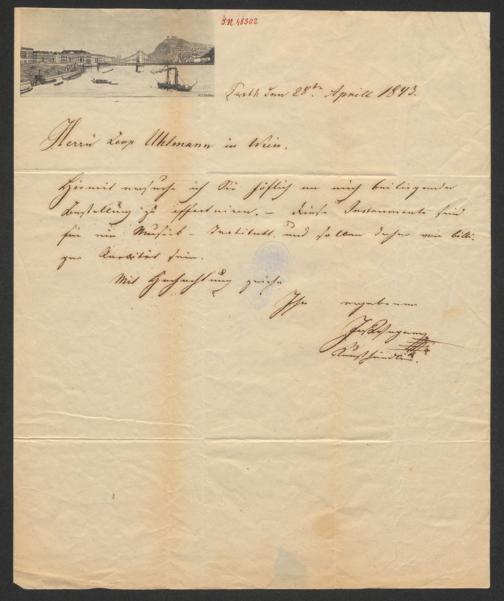 I.N. 48302
Pesth den 28ten Aprill 1843.
Herrn Leop Uhlmann in Wien.
Hiermit ersuche ich Sie höflich um mich beiliegende
Bestellung zu effectuiren. – Diese Instrumente sind
für ein Musick-Institutt, und sollen daher von billi-
ger Qualität sein.
Mit Hochachtung zeichne
Ihr ergebener
Kunsthändler.